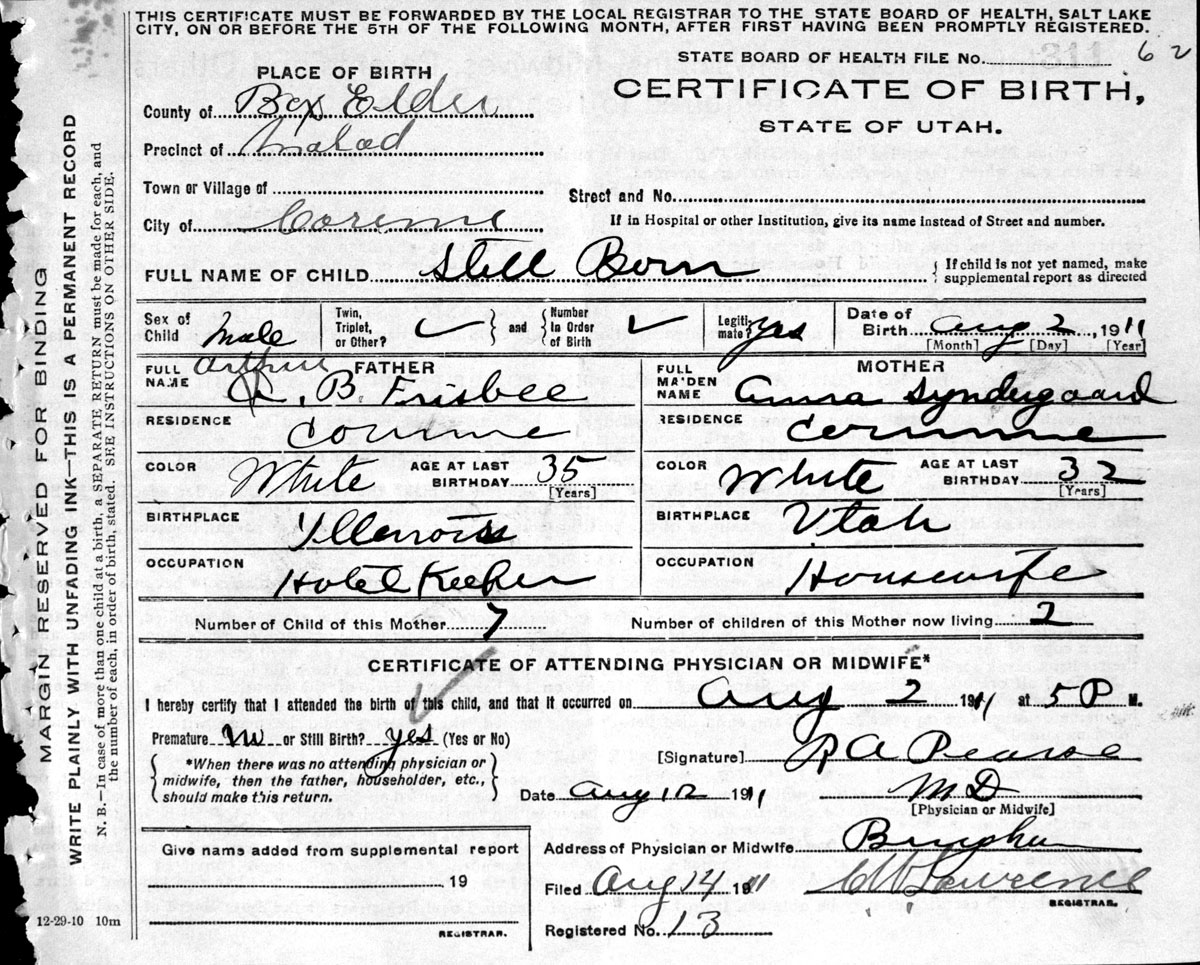 THIS CERTIFICATE MUST BE FORWARDED BY THE LOCAL REGISTRAR TO THE STATE BOARD OF HEALTH, SALT LAKE
CITY, ON OR BEFORE THE 5TH OF THE FOLLOWING MONTH, AFTER FIRST HAVING BEEN PROMPTLY REGISTERED.
STATE BOARD OF HEALTH FILE No. 62
PLACE OF BIRTH
CERTIFICATE OF BIRTH,
County of Box Elder
STATE OF UTAH.
Precinct of Malad
Town or Village of
Street and No.
City of Corinne
If in Hospital or other Institution, give its name instead of Street and number.
FULL NAME OF CHILD Still Born
If child is not yet named, make
supplemental report as directed
Sex of Child Male
Twin, Triplet, or Other? ✓ and Number In Order of Birth ✓
Legitimate? yes
Date of Birth Aug 2, 1911
[Month] [Day] [Year]
FATHER
FULL NAME Arthur
A. B. Frisbee
MOTHER
FULL MAIDEN NAME Anna Syndergaard
RESIDENCE Corinne
RESIDENCE Corinne
COLOR White AGE AT LAST BIRTHDAY 35 [Years]
COLOR White AGE AT LAST BIRTHDAY 32 [Years]
BIRTHPLACE Illenois
BIRTHPLACE Utah
OCCUPATION Hotel Keeper
OCCUPATION Housewife
Number of Child of this Mother 7 Number of children of this Mother now living 2
CERTIFICATE OF ATTENDING PHYSICIAN OR MIDWIFE*
I hereby certify that I attended the birth of this child, and that it occurred on Aug 2 1911 at 5 P M.
Premature no or Still Birth? yes (Yes or No)
*When there was no attending physician or
midwife, then the father, householder, etc.,
should make this return.
[Signature] R A Pearse
M D
[Physician or Midwife]
Date Aug 12 1911
Give name added from supplemental report
19
REGISTRAR.
Address of Physician or Midwife Brigham
Filed Aug 14 1911 Lawrence
REGISTRAR.
Registered No. 13
12-29-10 10m
MARGIN RESERVED FOR BINDING
WRITE PLAINLY WITH UNFADING INK—THIS IS A PERMANENT RECORD
N. B.—In case of more than one child at a birth, a SEPARATE RETURN must be made for each, and
the number of each, in order of birth, stated. SEE INSTRUCTIONS ON OTHER SIDE.